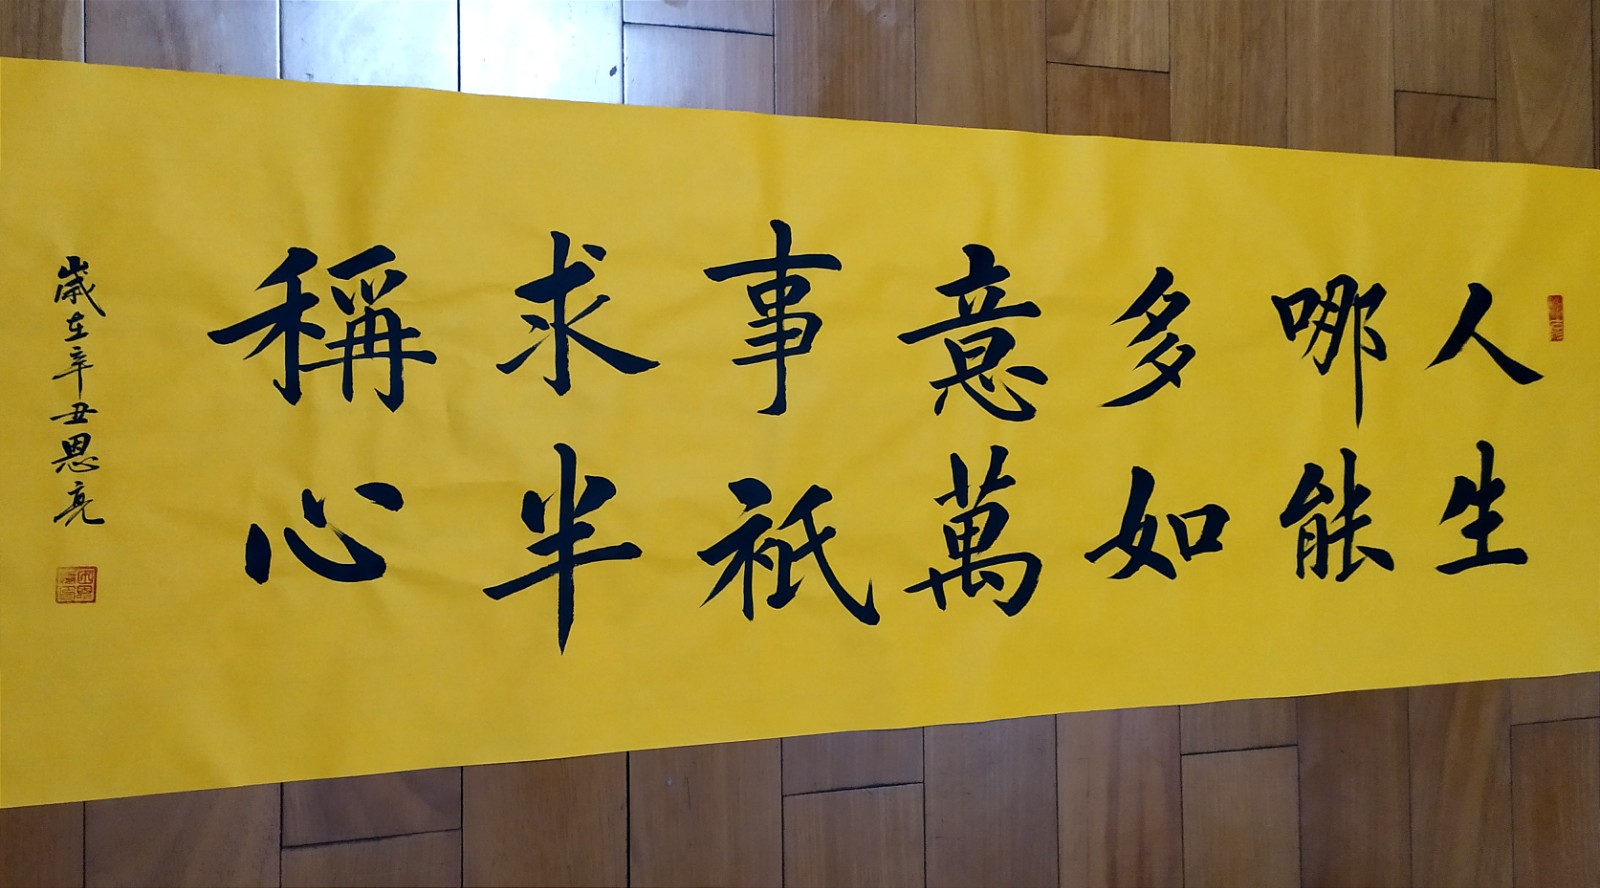 人生
哪能
多如
意萬
事祇
求半
稱心
歲在辛丑恩亮